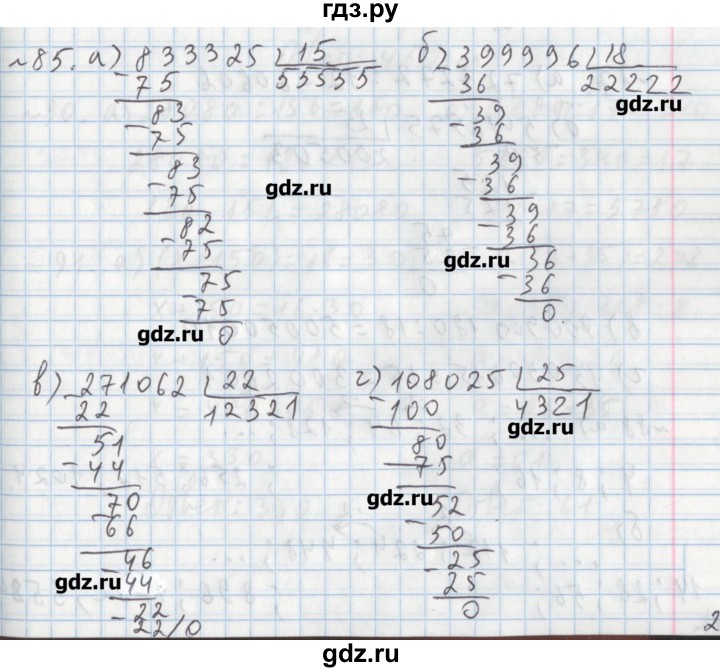 гдз.ру
№85. а) 833325 15 б) 399996 18
- 75 55555 36 22222
83 gdz.ru
- 75
83
- 75
82
- 75
75
- 75
0
39
- 36
39
- 36
39
- 36
36
- 36
0.
gdz.ru
gdz.ru
gdz.ru
в) 271062 22 г) 108025 25
22 12321 - 100 4321
51
- 44
70
- 66
46
- 44
- 22
22/0
80
75
52
- 50
- 25
25
0
gdz.ru
gdz.ru
gdz.ru
2
gdz.ru